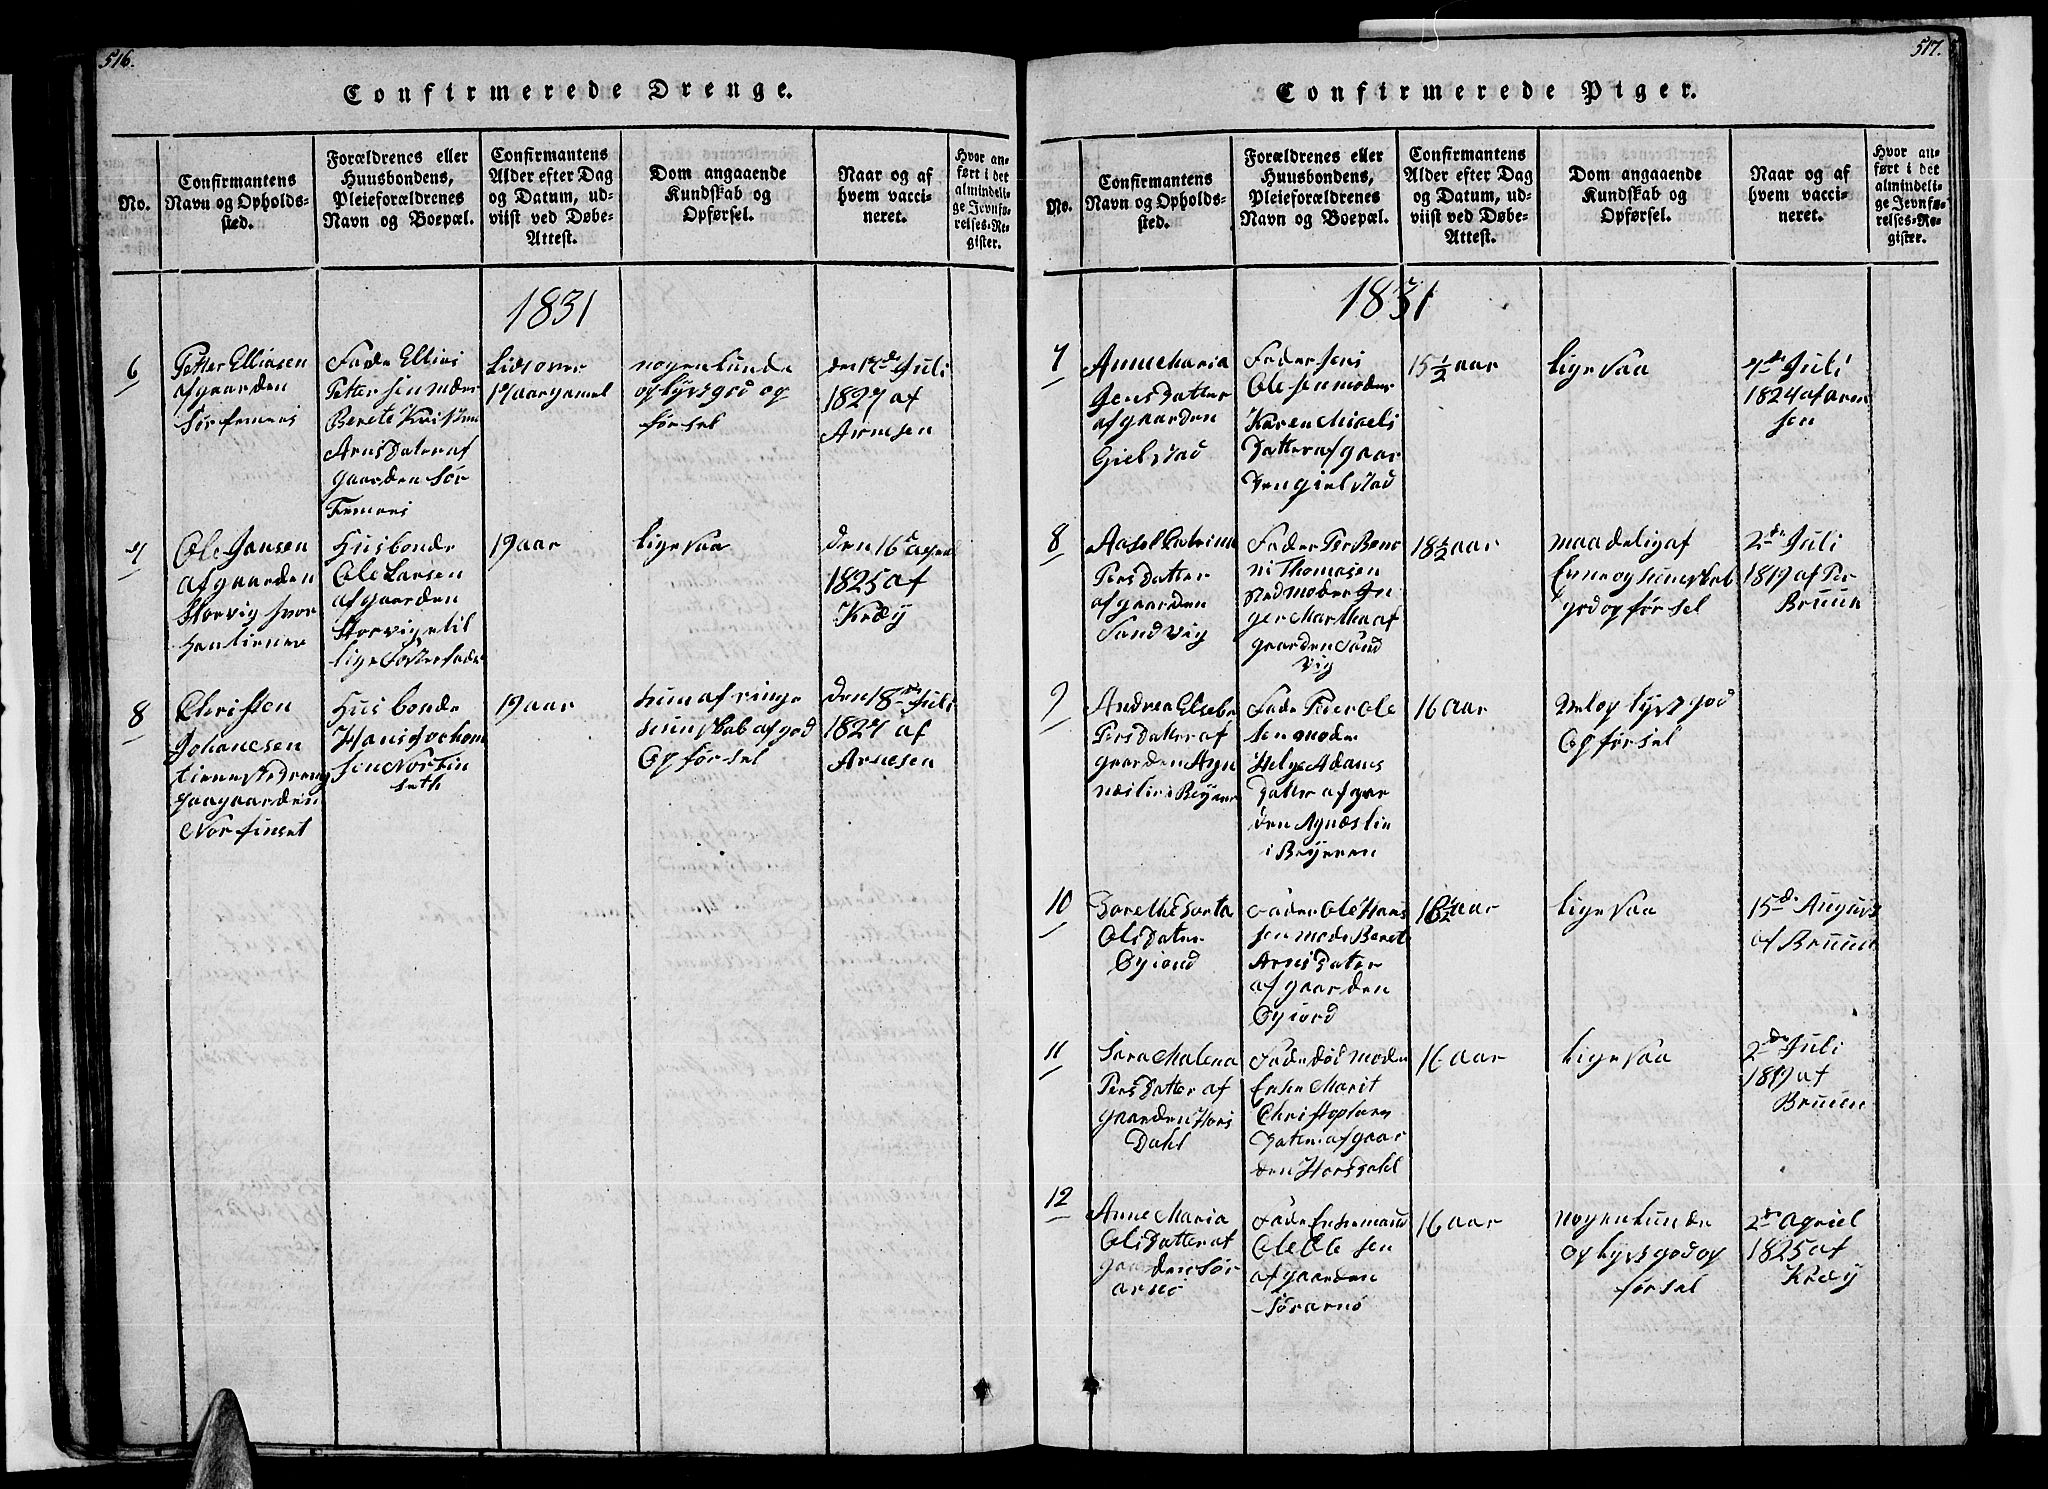 516.
Confirmerede Drenge.
No.
Confirmantens
Navn og Opholds-
sted.
Forældrenes eller
Huusbondens,
Pleieforældrenes
Navn og Boepæl.
Confirmantens
Alder efter Dag
og Datum, ud-
viist ved Døbe-
Attest.
Dom angaaende
Kundskab og
Opførsel.
Naar og af
hvem vacci-
neret.
Hvor an-
ført i det
almindeli-
ge Jevnfø-
relses-Re-
gister.
1831
6
Petter Elliasen
af gaarden
Sør
Fade Ellias
Petter sen moder
Berete
Arns Dater af
gaarden Sør
Lidt over
19 aar gamel
nogenlunde
oplyst god op
førsel
den 17de Juli
1827 af
Arnesen
7
Ole Jansen
af gaarden
Storvig hvor
han tiener
Husbonde
Ole Larsen
af gaarden
Storvig til
lige Foster fader
19 aar
lige saa
den 16
1825 af
Krøy
8
Christen
Johanesen
tieneste dreng
paa gaarden
Nor finset
Husbonde
Hans Jochom
sen Norfin
seth
19 aar
hun af ringe
kunskab af god
Opførsel
den 18de Juli
1827 af
Arnesen
517.
Confirmerede Piger.
No.
Confirmantens
Navn og Opholds-
sted.
Forældrenes eller
Huusbondens,
Pleieforældrenes
Navn og Boepæl.
Confirmantens
Alder efter Dag
og Datum, ud-
viist ved Døbe-
Attest.
Dom angaaende
Kundskab og
Opførsel.
Naar og af
hvem vacci-
neret.
Hvor an-
ført i det
almindeli-
ge Jevnfø-
relses-Re-
gister.
1831
7
Anne Maria
Jens Datter
af gaarden
Gielstad
Fader Jens
Ole sen moder
Karen Micels
Datter af gaar
den gielstad
15 1/2 aar
lige saa
7de Juli
1824 af Arne
sen
8
Aasel Catrina
Pers Datter
af gaarden
Sandvig
Fader Per Bene
ni Thomasen
Sted moder In
ger Martha af
gaarden Sand
vig
18 1/2 aar
maadelig af
Evne og kunskab
god opførsel
2de Juli
1819 af Per
Bruun
9
Andrea Elsebe
Pers Dater af
gaarden Agn
næs lie i Bejeren
Fade Peder Ole
sen mode
Helge Adams
Dater af gar
den Agnæs lie
i Bejeren
16 aar
vel oplyst god
Opførsel
10
Dorethe Dorta
Ols Dater
Øyiord
Fader Ole Hans
sen mode Beret
Arns Dater
af gaarden
Øyiord
16 1/2 aar
lige saa
15de August
af Bruun
11
Sara Malena
Pers Datter af
gaarden Hors
Dahl
Fade død moder
Enke Marit
Christophers
Dater af gaar
den Horsdahl
16 aar
lige saa
2de Juli
1819 af
Bruuen
12
Anne Maria
Ols Datter af
gaarden Sør
arnø
Fade Enkemand
Ole Ole sen
af gaarden
Sørarnø
16 aar
nogenlunde
oplyst god op
førsel
2de Apriel
1825 af
Krøy